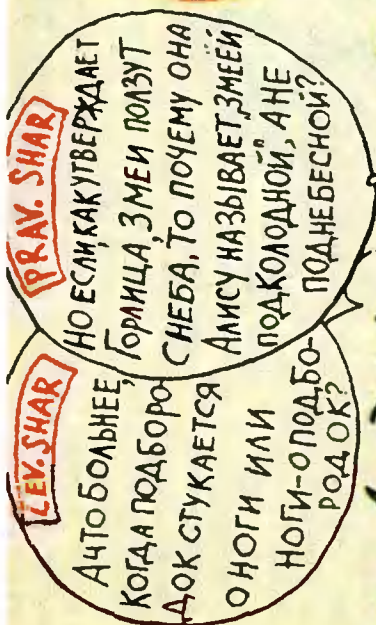 LEV. SHAR
А ЧТО БОЛЬНЕЕ,
КОГДА ПОДБОРО
ДОК СТУКАЕТСЯ
О НОГИ ИЛИ
НОГИ-О ПОДБО-
РОДОК?
PRAV. SHAR
НО ЕСЛИ, КАК УТВЕРЖДАЕТ
ГОРЛИЦА, ЗМЕИ ПОЛЗУТ
С НЕБА, ТО ПОЧЕМУ ОНА
АЛИСУ НАЗЫВАЕТ „ЗМЕЁЙ
ПОДКОЛОДНОЙ", А НЕ
ПОДНЕБЕСНОЙ?